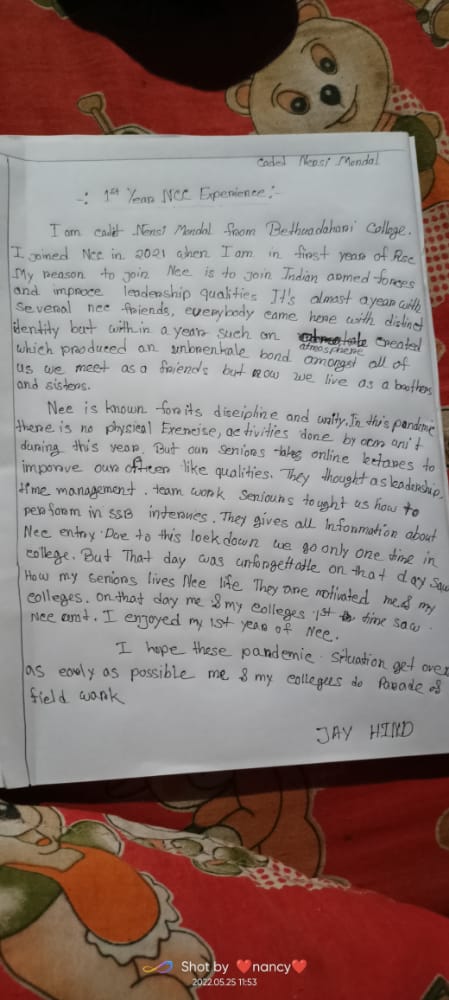 Cadet Nensi Mondal
-: 1st Year NCC Experience:-
I am cadet Nensi Mondal from Bethuadahari College.
I joined Ncc in 2021 when I am in first year of Bsc
My reason to join Ncc is to join Indian armed forces
and improce leadership qualities It's almost a year with
several ncc friends, everybody came here with distinct
identity but within a year such an atmosphere created
which produced an unbrenkale bond amongst all of
us we meet as a friends but now we live as a boothers
and sisters.
Ncc is known for its discipline and unity. In this pandmic
there is no physical Exercise, activities done by our unit
during this year. But our seniors takes online lectares to
imporve our officer like qualities. They thought as leadership.
time management. team work seniours tought us how to
perform in SSB interues. They gives all Information about
Ncc entry. Doe to this lockdown we go only one time in
college. But That day was unforgettable on that day saw
How my seniors lives Ncc life They are motivated me & my
colleges. on that day me & my colleges 1st time saw
Ncc unit. I enjoyed my 1st year of Ncc.
I hope these pandemic situation get over
as early as possible me & my collegues do Parade &
field work
JAY HIND
Shot by ❤️nancy❤️
2022.05.25 11:53